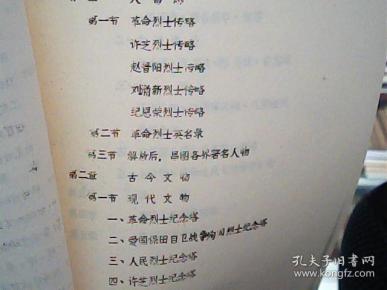 第一节 革命烈士传略
许芝烈士传略
赵晋阳烈士传略
刘清新烈士传略
纪恩荣烈士传略
第二节 革命烈士英名录
第三节 解放后，昌图各界著名人物
第二章 古今文物
第一节 现代文物
一、革命烈士纪念塔
二、爱国保田自卫战争殉国烈士纪念塔
三、人民烈士纪念塔
四、许芝烈士纪念塔
孔夫子旧书网